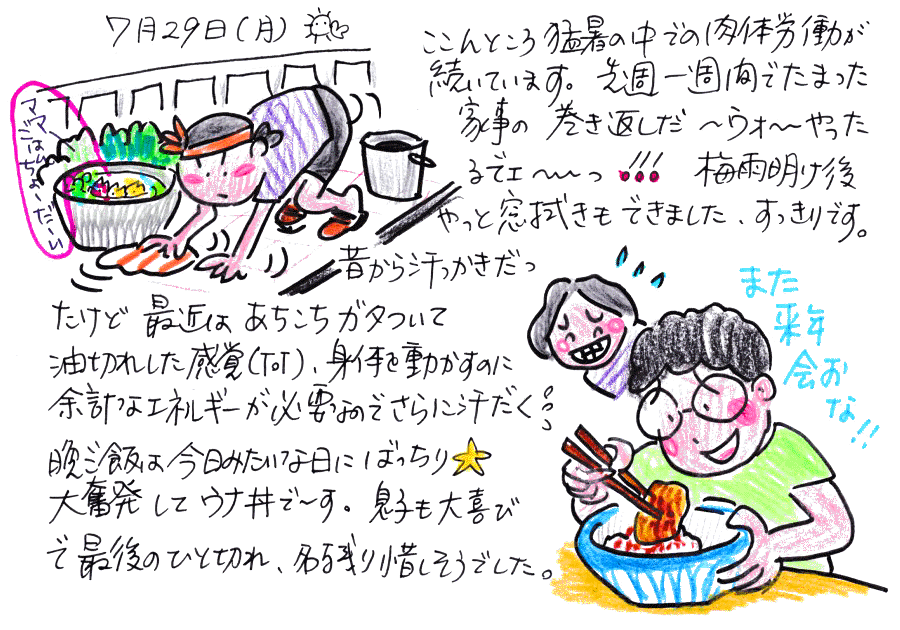 7月29日(月)
ここんところ猛暑の中での肉体労働が
続いています。先週一週間でたまった
家事の巻き返しだ〜ウォ〜やった
るでェ〜〜っ!!! 梅雨明け後
やっと窓拭きもできました、すっきりです。
昔から汗っかきだっ
たけど最近はあちこちガタついて
油切れした感覚(ToT)、身体を動かすのに
余計なエネルギーが必要なのでさらに汗だく
晩ご飯は今日みたいな日にばっちり
大奮発してウナ丼で〜す。息子も大喜び
で最後のひと切れ、名残り惜しそうでした。
また
来年
会お
な!!